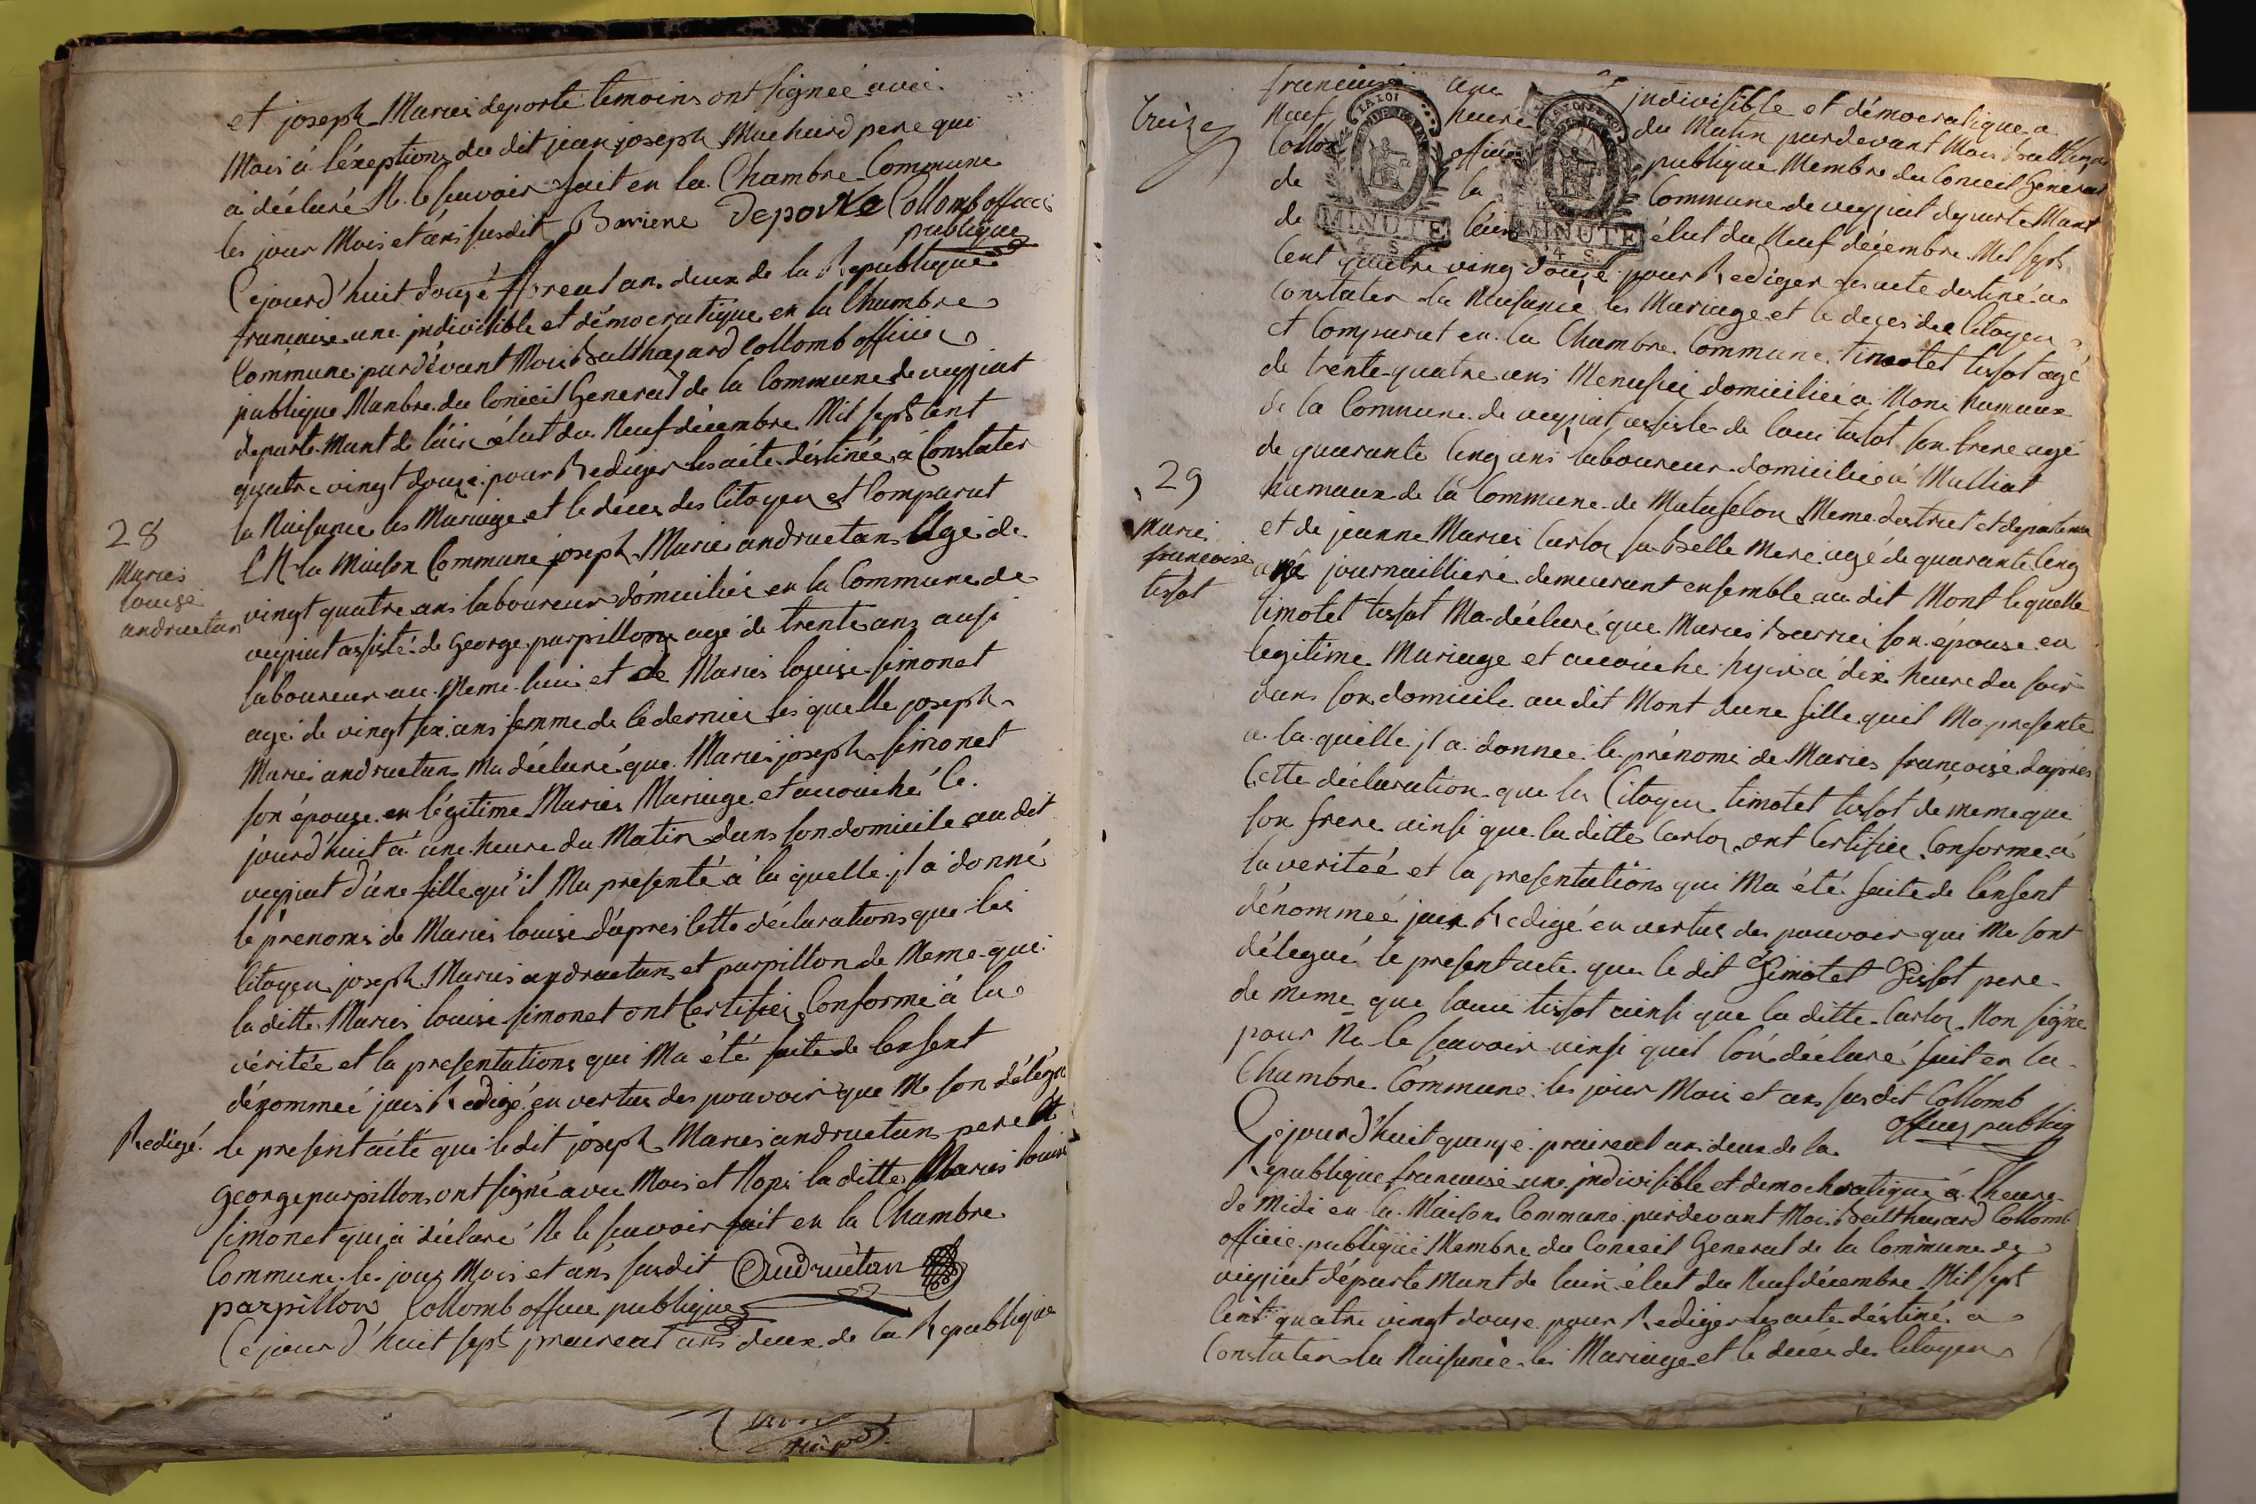 et joseph Maries deporte temoins ont signeé avec
Mois à l'éxeptions du dit jean joseph Muchard pere qui
à décluré Ne le seavoir fait en la Chambre Commune
les jour Mois et ans susdit Barriere deporte Collomb officie
publique
Cejourd'huit douzé floreal ans deux de la Republique
francaise une jndivisible et démocratique en la Chambre
Commune pardévant Moi Balthazard Collomb officie
publique Manbre du Conseil General de la Commune de veyziat
departe Mant de l'ain élut du Neuf décembre Mil sept Cent
quatre vingt douze pour Rediger les acte destinée à Constater
la Naisance les Mariage et le deces des Citoyen et Comparut
28
EN la Maison Commune joseph Maries andruetans Agé de
Maries
louise
andruetan
vingt quatre ans laboureur domiciliée en la Commune de
veyziat assisté de George parpillons age de trente ans ausi
laboureur au Meme lieu et de Maries louise simonet
agé de vingt six ans femme de ce dernier les quelle joseph
Maries andruetans Ma décluré que Maries joseph simonet
son épouse en légitime Maries Mariage et accouché Ce
jourd'huit à une heure du Matin dans son domicile au dit
veyziat d'une fille qu'il Ma presenté à la quelle jl a donné
le prenoms de Maries louise d'apres Cette déclarations que les
Citoyen joseph Maries andruetans et parpillon de Meme que
la ditte Maries louise simonet ont Certifiee Conforme à la
véritée et la presentations qui Ma été faite de lensent
dénommeé jais Redigé en vertus des pouvoir que Me son délégu
Redigé
le present acté que le dit joseph Maries andruetans pere Et
George parpillons ont signé avec Mois et Nopi la ditte Maries louise
simonet qui à décluré Ne le seavoir fait en la Chambre
Commune les jour Mois et ans susdit Andruétan
parpillon Collomb officie publique
Ce jour d'huit sept preireal ans deux de la Republique
treize
francaise une jndivisible et démocratique a
Neuf heure du Matin pardevant Mois Balthazar
Collom officie publique Membre du Conseil Général
de la Commune de veyziat departe Mant
de lain élut du Neuf décembre Mil sept
LA LOI
MINUTE
4 S.
MINUTE
4 S.
Cent quatre ving douzé pour Rediger les acte destiné a
Constater la Naisance les Mariage et le deces des Citoyen
et Comparut en la Chambre Commune timotet tissot agé
de trente quatre ans Menusié domiciliée a Mons hamaux
de la Commune de veyziat assisté de loui tissot son frere agé
de quarante Cinq ans laboureur domiciliée à Mulliat
29
hamaux de la Commune de Mataselon Meme destrict et departeman
Maries
francoise
tissot
et de jeanne Maries Carloz sa belle Mere agé de quarante Cinq
ans journailliere demeurant ensemble au dit Mont lequelle
timotet tissot Ma décluré que Maries Barrier son épouse en
legitime Mariage et accouche hyer à dix heure du soir
dans son domicile au dit Mont dune fille quil Ma presente
a la quelle jl a donnee le prénoms de Maries francoise dapres
Cette déclaration que les Citoyen timotet tissot de meme que
son frere ainsi que la ditte Carloz ont Certifiée Conforme à
la veriteé et la presentations qui Ma été faite de lensent
dénommeé jais Redigé en vertus des pouvoir qui Me sont
délegué le present acte que le dit Timotet Tissot pere
de meme que loui tissot ainsi que la ditte Carloz Non signe
pour Ne le seavoir ainsi quil lon décluré fait en la
Chambre Commune les jour Mois et ans susdit Collomb
officy publiq
Cejourd'huit quinze praireal ans deux de la
Republique francaise une jndivisible et demochratique à lheure
de Midi en la Maisons Commune pardevant Moi Balthazard Collomb
officie publique Membre du Conseil General de la Commune de
veyziat départe Mant de lain élut du Neuf décembre Mil sept
Cent quatre vingt douze pour Rediger les acte déstiné a
Constater la Naisance les Mariage et le deces des Citoyen